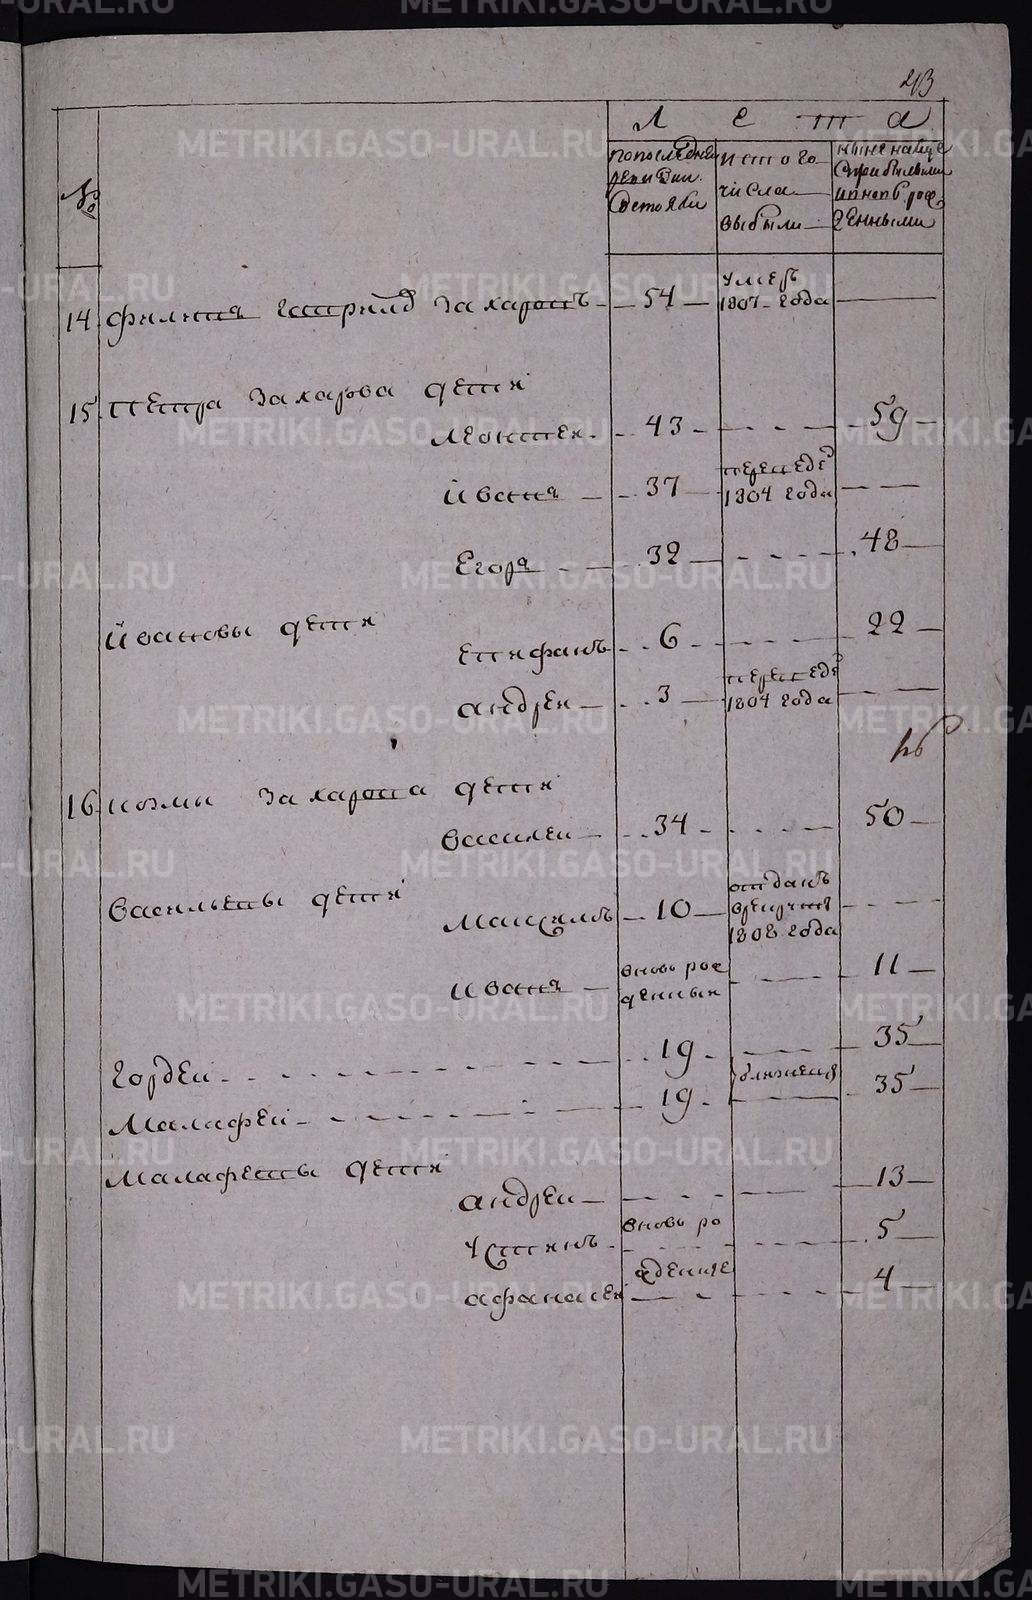 43
Лета
№
по последней
ревизии
состояли
ис того
числа
выбыли
ныне налице
с прибылыми
и вновь рож
денными
14 Филипъ Захаровъ 54 умеръ
1807 года
15 Петра Захарова дети
Леонтей 43 59
Иванъ 37 переведе
1804 года
Егоръ 32 48
Ивановы дети
Епифанъ 6 22
Андрей 3 переведе
1804 года
16 Козмы Захарова дети
Василей 34 50
Васильевы дети
Максимъ 10 отданъ
в рекруты
1808 года
Иванъ вновь рож
денный 11
Гордей 19 35
близнецы
Малафей 19 35
Малафеевы дети
Андрей 13
Устинъ вновь ро 5
Афанасей жденные 4
METRIKI.GASO-URAL.RU